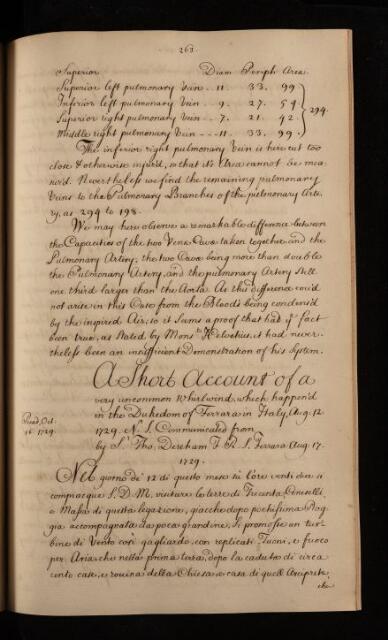 263
Superior Diam Periph Area.
Superior left pulmonary Vein .. 11. 33. 99
Inferior left pulmonary Vein .. 9. 27. 54
Superior right pulmonary Vein .. 7. 21. 42
Middle right pulmonary Vein --- 11. 33. 99. } 294.
The inferior right pulmonary Vein is here cut too
close & otherwise injur'd, so that it's Area cannot be mea
sur'd. Nevertheless we find the remaining pulmonary
Veins to the Pulmonary Branches of the pulmonary Arte
ry, as 294 to 198.
We may here observe a remarkable difference between
the Capacities of the two Venæ Cavæ taken together and the
Pulmonary Artery; the two Cavæ being more than double
the Pulmonary Artery, and the pulmonary Artery still
one third larger than the Aorta. As this difference could
not arise in this Case from the Bloods being condens'd
by the inspired Air, so it seems a proof that had ye fact
been true, as stated by Monsr. Helvetius, it had never-
theless been an insufficient Demonstration of his System.
A Short Account of a
very uncommon Whirlwind which happen'd
in the Dukedom of Ferrara in Italy, Aug. 12
Read, Oct.
16 1729.
1729. N.S. Communicated from
by Sr. Tho. Dereham F.R.S. Ferrara Aug. 17.
1729.
Nel giorno de' 12 di questo mese su l'ore venti due si
compiacque S.D.M. visitare le terre di Trecenta
o Massa di questa legazione, giacche dopo pochissima Piog
gia accompagnata da poca grandine, si promosse un tur
bine di Vento così gagliardo, con replicati Tuoni, e fuoco
per Aria che nella prima terra, dopo la caduta di circa
cento case, e rovina della Chiesa, e casa di quell Arciprete,
che